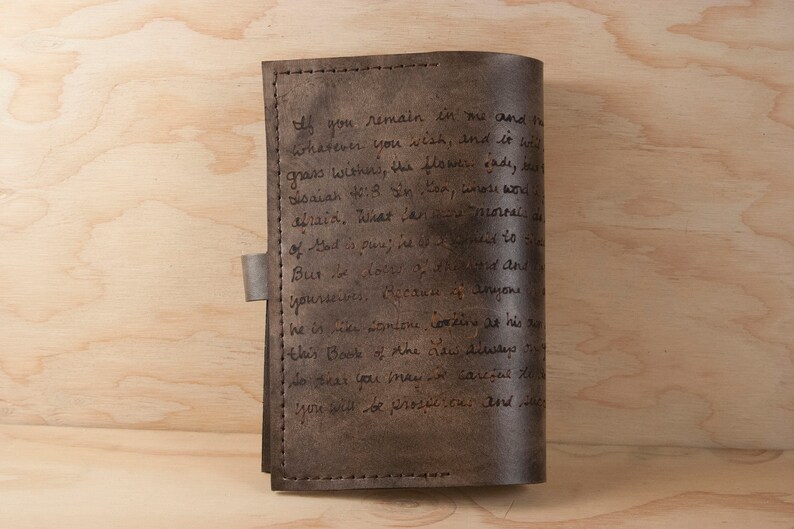 If you remain in me and m
whatever you wish, and it will
grass withers, the flower fade,
Isaiah 40:8 In God, whose word I
afraid. What can mere mortals do
of God is pure; he is a shield to
But be doers of the word and
yourselves. Because if anyone is
he is like someone looking at his own
this Book of the Law always on
so that you may be careful to
you will be prosperous and succ